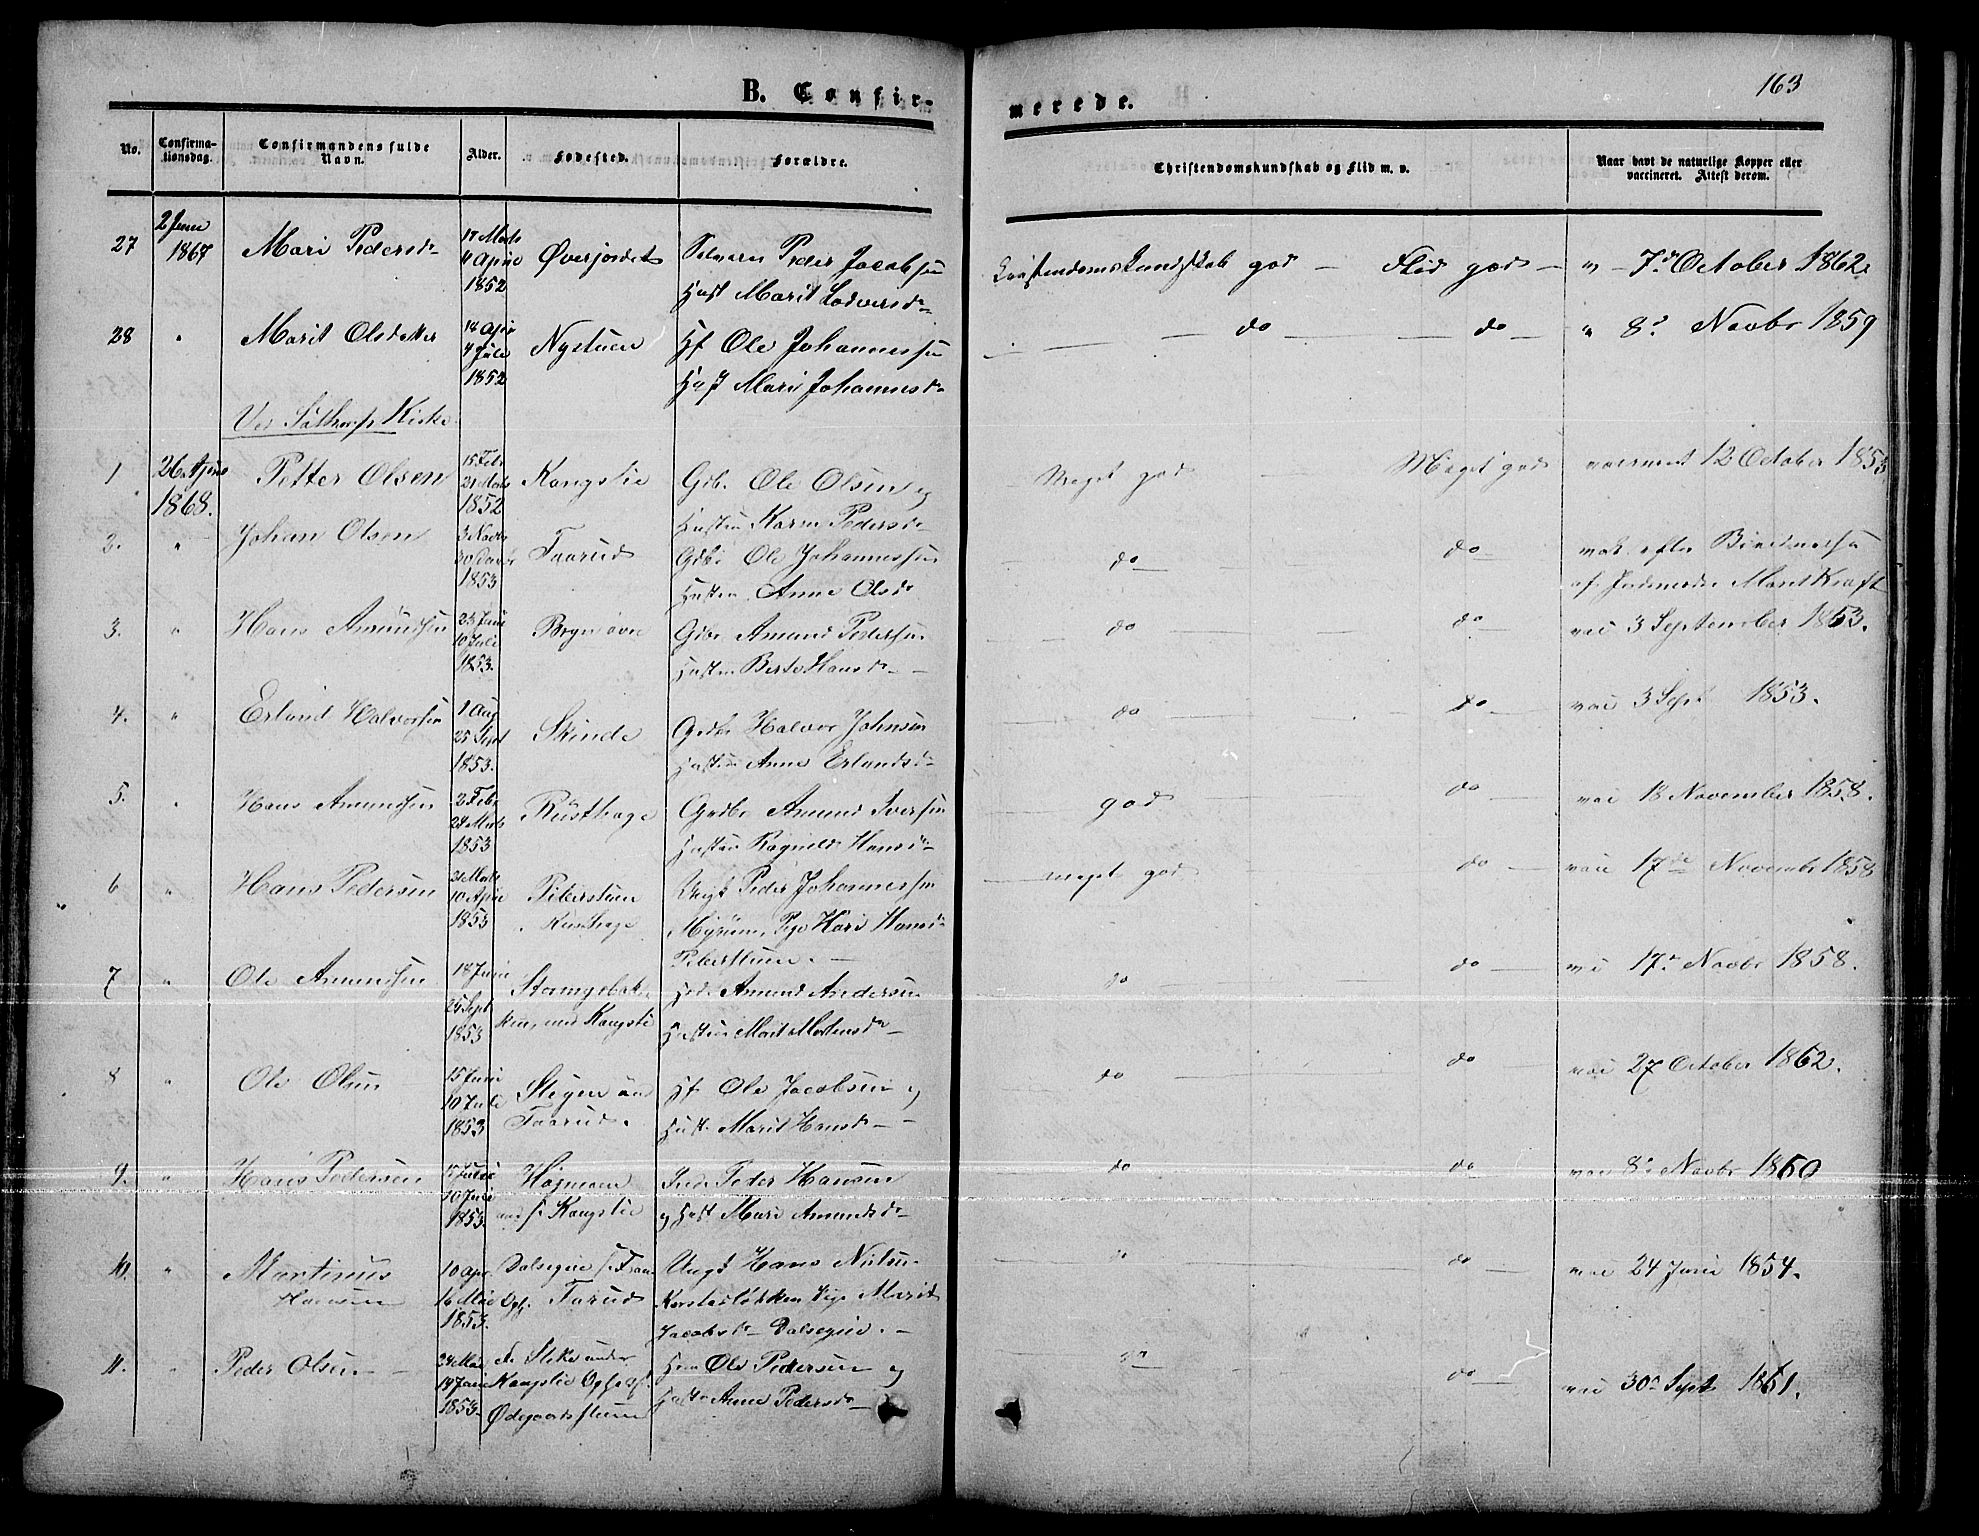 B. Confir-
merede.
163
No.
Confirma-
tionsdag.
Confirmandens fulde
Navn.
Alder.
Fødested.
Forældre.
Christendomskundskab og Flid m. v.
Naar havt de naturlige Kopper eller
vaccineret. Attest derom.
27 2 Juni 1867 Mari Pedersdr 1852 Øverjordet Peder Jacobsen
Hust Marit
Kristendomskundskab god — Flid god — " 7de October 1862
28 " Marit Olsdatter 1852 Nystuen Hf Ole Johannessen
Hust Mari Johannesdr
do — do — " 8d Novbr 1859
Ved Kirke
1 26 April 1868. Petter Olsen 15 Febr 21 Marts 1852 Kongslie Gdbr Ole Olsen og
Hustru Karen Pedersdr
Meget god Meget god 12 October 1853
2. " Johan Olsen 3 Novbr 1853 Taarud Gdbr Ole Johannessen
Hustru Anne Olsdr
do do efter
af Kraft
3. " Hans Amundsen 23 Juni 10 Juli 1853. Gdbr Amund Pedersen
Hustru Berte Hansdr —
do do vac 3 September 1853.
4. " Erland Halvorsen 1 Aug 25 Sept 1853. Skinde Gdbr Halvor Johnsen
Hustru Anne Erlandsdr
do do vac 3 Sept 1853.
5. " Hans Amundsen 2 Febr 24 Marts 1853 Rusthage Gdbr Amund Iversen
Hustru Ragnild Hansdr
god do vac 18 November 1858.
6 " Hans Pedersen 10 April 1853 Piberstuen
Rusthage
Ungk Peder Johannessen
Pige Kari Hansdr
Piberstuen. —
meget god do vac 17de Novembr 1858
7 " Ole Amundsen 18 Juni 25 Sept 1853 und Kongslie
Amund Andersen
Hustru Marit Mortensdr
do do vac 17d Novbr 1858.
8 " Ole Olsen 15 Juni 10 Juli 1853 Stigen
Taarud.
Hf Ole Jacobsen og
Hust. Marit Hansdr —
do do vac 27 October 1862.
9. " Hans Pedersen 10 Juli 1853. Højmoen
Kongslie
Inds Peder Hansen
og Hust Mari Amundsdr
do do vac 8d Novbr 1860
10. " Martinus
Hansen
10 Apr. 16 Mai 1853. Dalsegen
Taarud
Ungk Hans Nilsen
Pige Marit
Jacobsdr Dalsegen. —
do do vac 24 Juni 1854.
11. " Peder Olsen — 24 Mai 19 Juni 1853. under
Kongslie
Ødegaardsstuen
Ole Pedersen og
Anne Pedersdr
do do vac 30d Sept 1861.